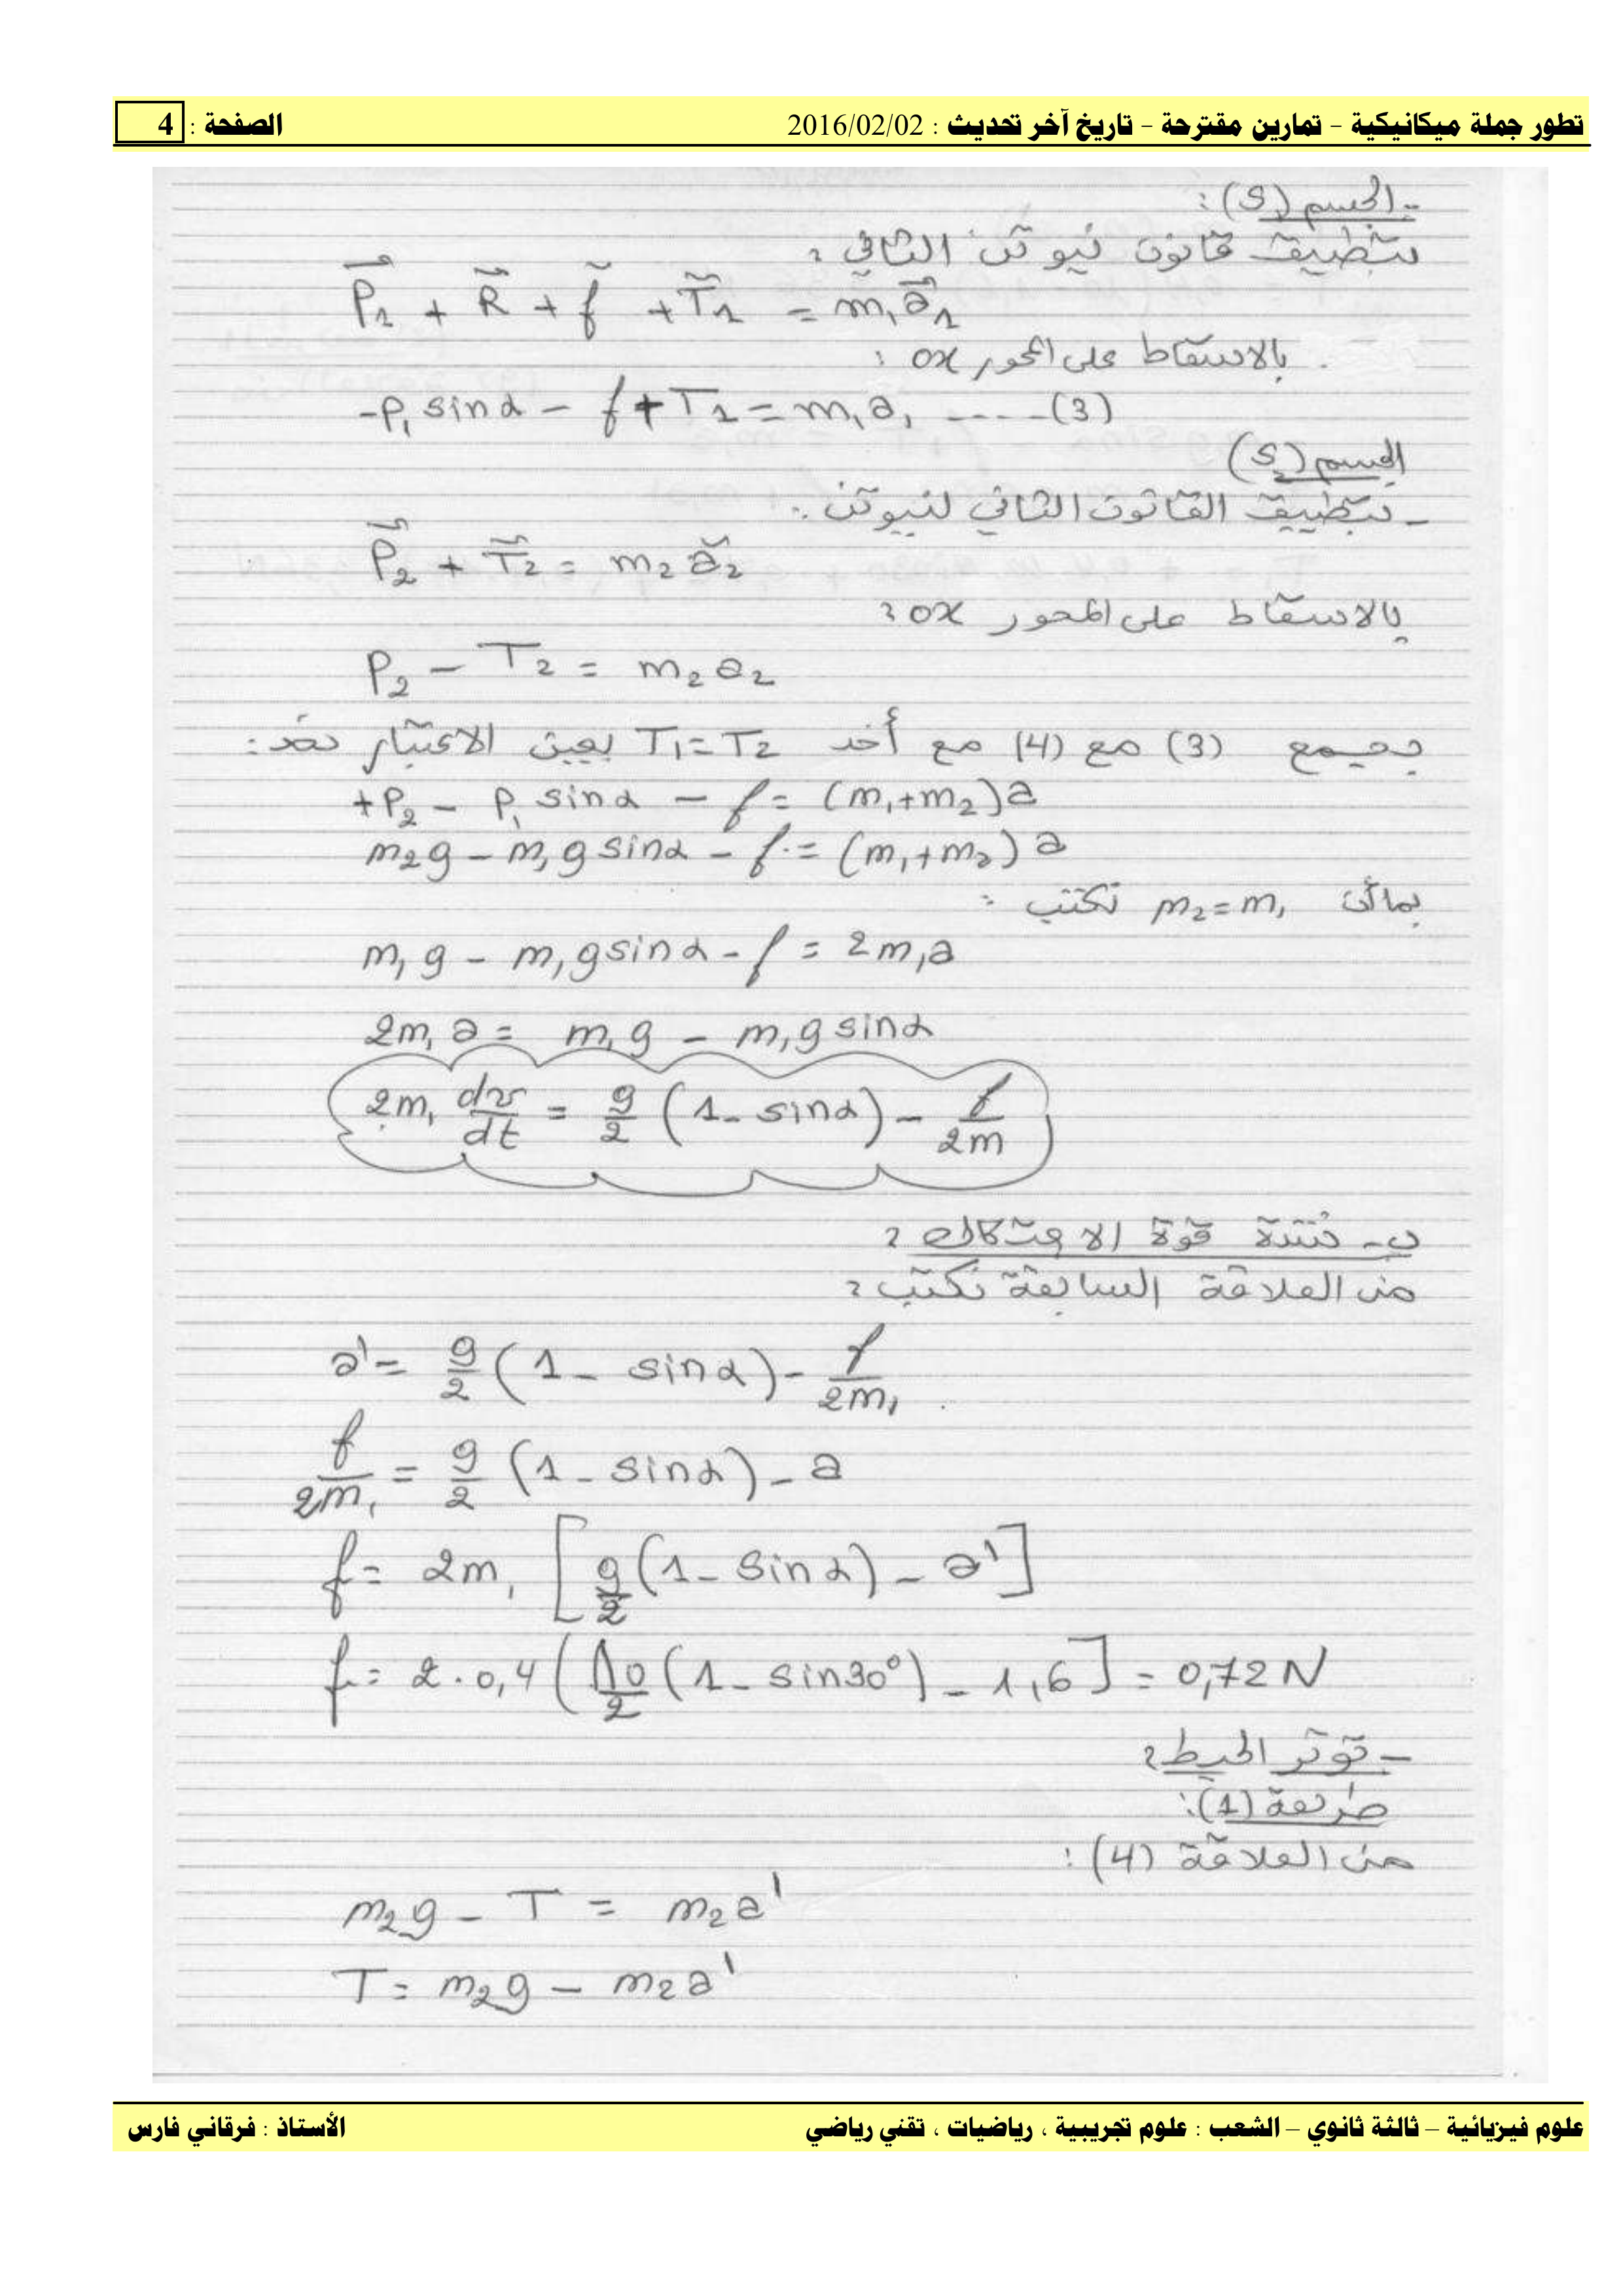 تطور جملة ميكانيكية - تمارين مقترحة - تاريخ آخر تحديث : 2016/02/02 الصفحة : 4
- الجسم (S₁) :
بتطبيق قانون نيوتن الثاني :
P₁ + R + f + T₁ = m₁a₁
بالاسقاط على المحور ox :
-P₁ sinα - f + T₁ = m₁a₁ ----- (3)
الجسم (S₂)
- بتطبيق القانون الثاني لنيوتن :
P₂ + T₂ = m₂a₂
بالاسقاط على المحور ox :
P₂ - T₂ = m₂a₂
بجمع (3) مع (4) مع أخد T₁=T₂ بعين الاعتبار نجد :
+P₂ - P₁ sinα - f = (m₁+m₂)a
m₂g - m₁g sinα - f = (m₁+m₂)a
بما أن m₂=m₁ نكتب :
m₁g - m₁g sinα - f = 2m₁a
2m₁a = m₁g - m₁g sinα
2m₁ dv/dt = g/2 (1 - sinα) - f/2m
ب- شدة قوة الاحتكاك :
من العلاقة السابقة نكتب :
a' = g/2 (1 - sinα) - f/2m₁
f/2m₁ = g/2 (1 - sinα) - a
f = 2m₁ [g/2 (1 - sinα) - a']
f = 2 . 0,4 (10/2 (1 - sin30°) - 1,6] = 0,72 N
- توتر الخيط :
طريقة (1) :
من العلاقة (4) :
m₂g - T = m₂a'
T = m₂g - m₂a'
علوم فيزيائية – ثالثة ثانوي – الشعب : علوم تجريبية ، رياضيات ، تقني رياضي الأستاذ : فرقاني فارس